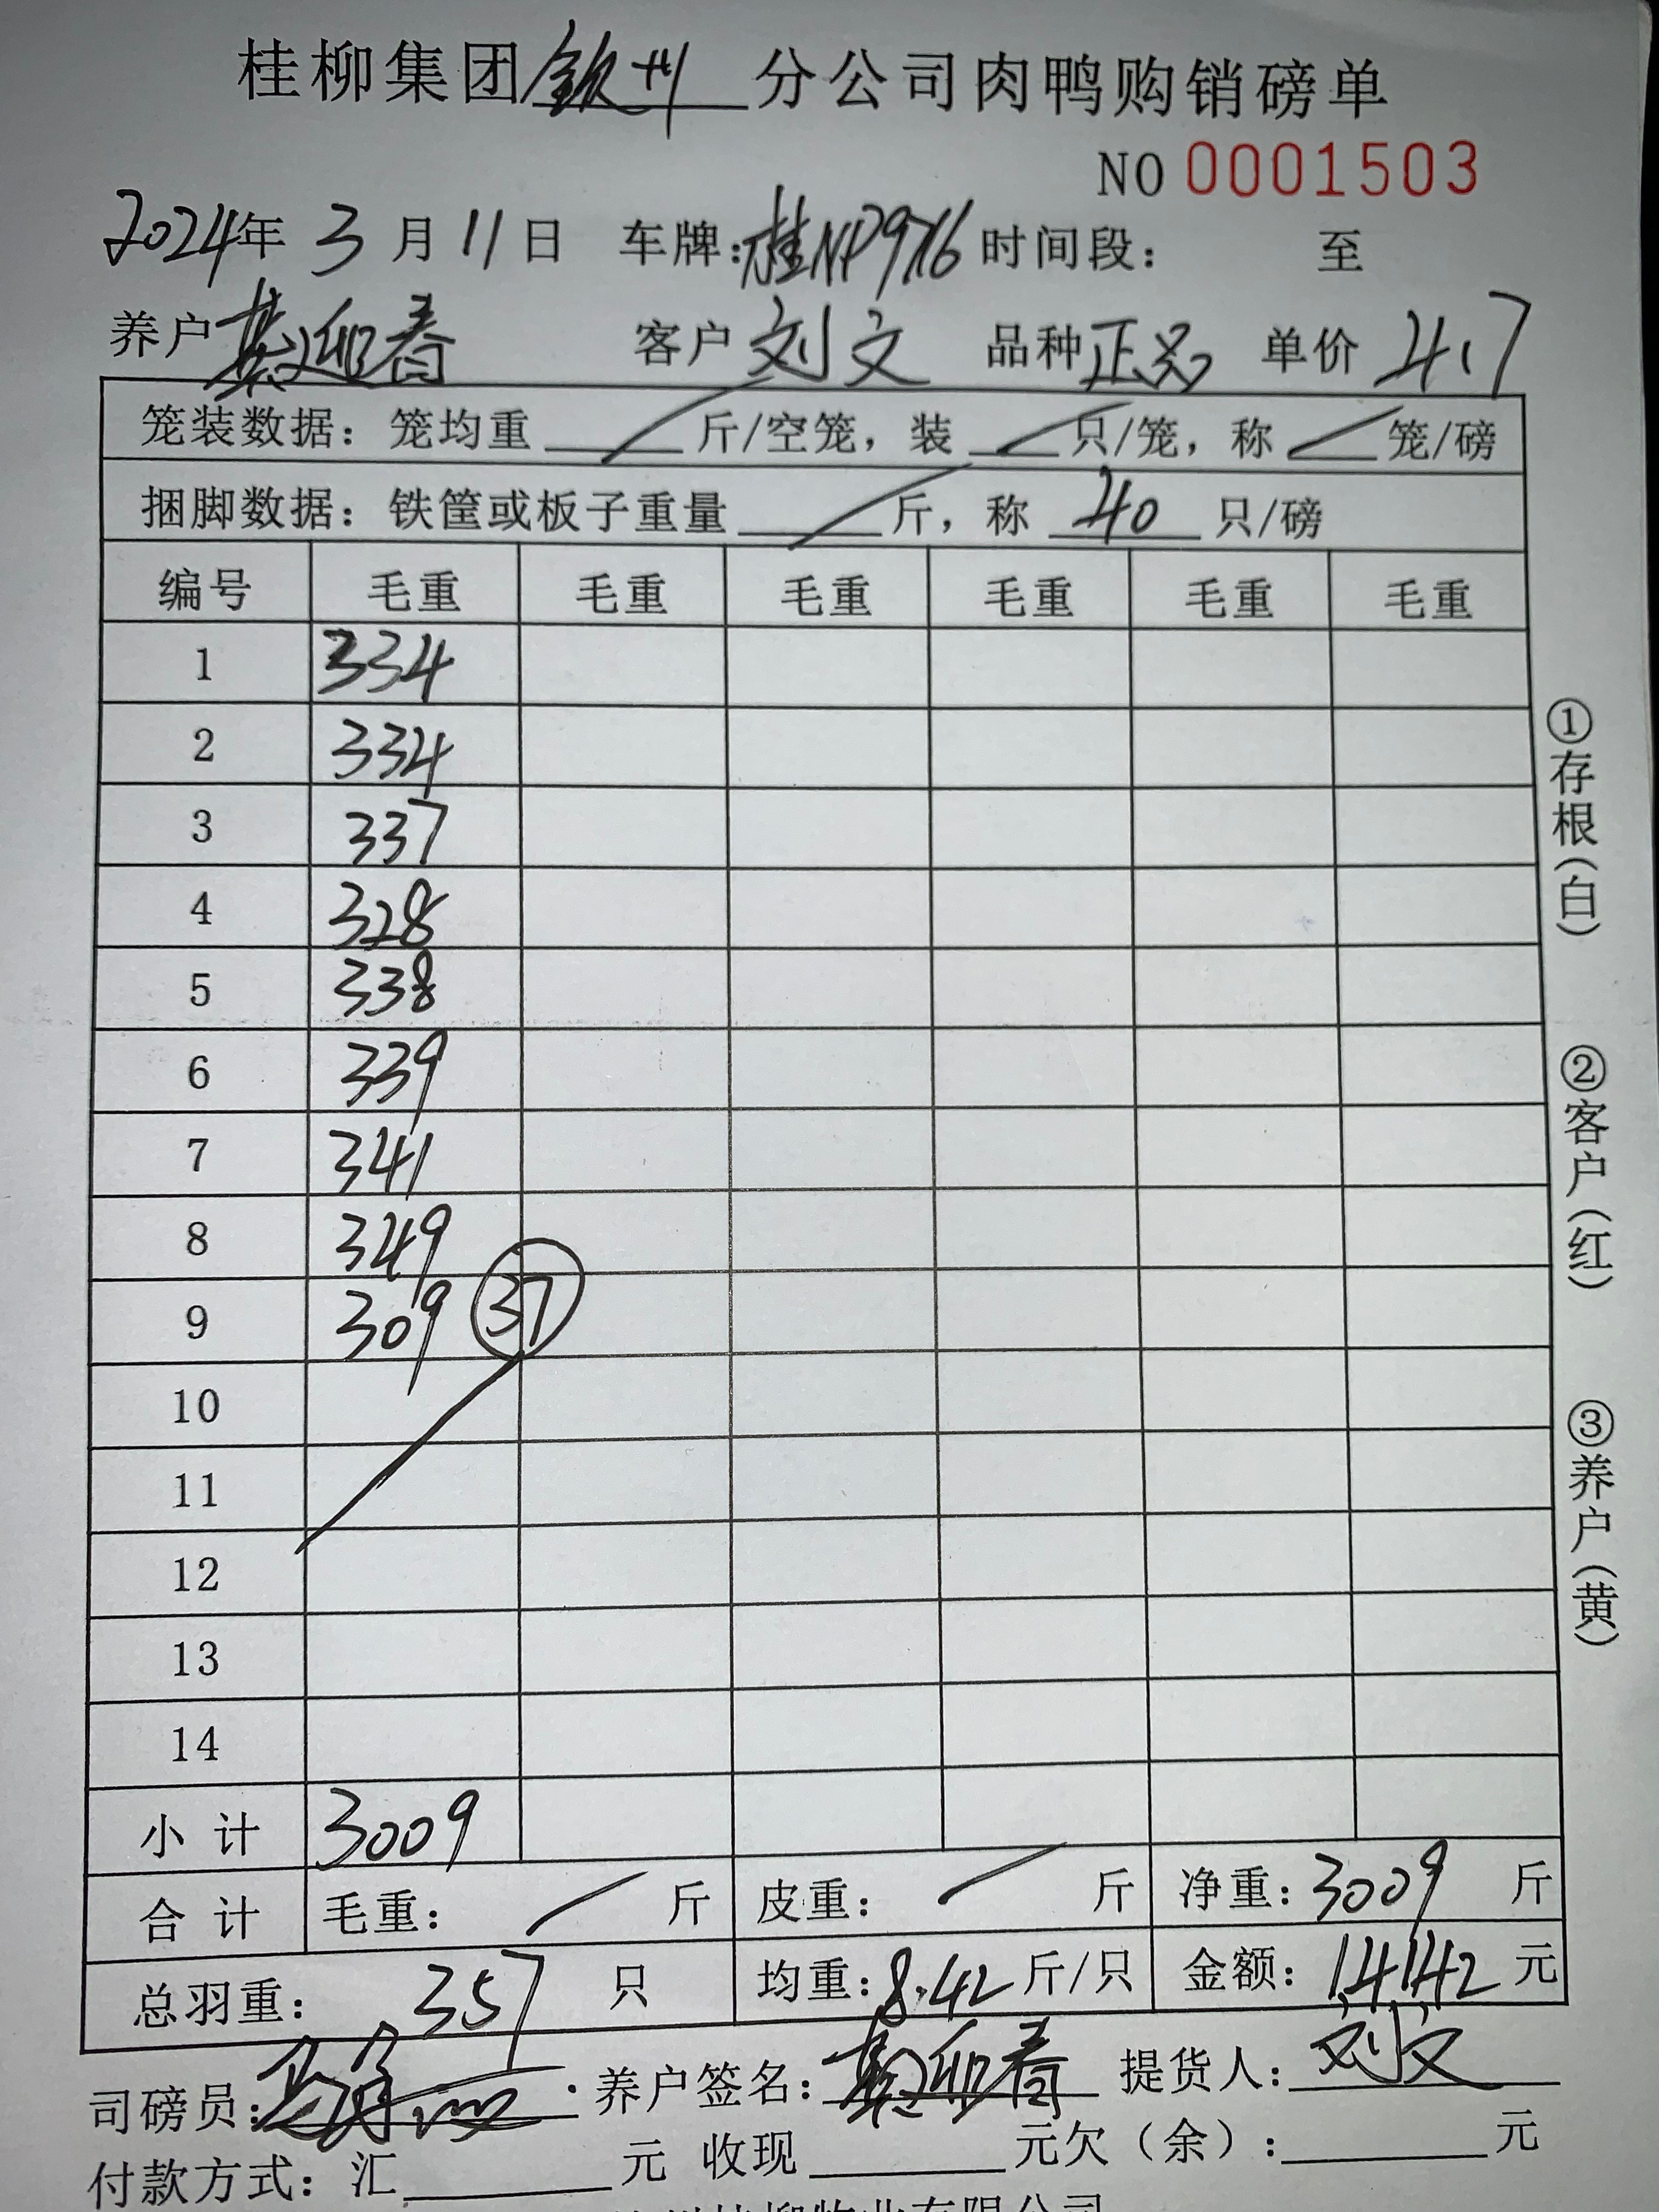 桂柳集团钦州分公司肉鸭购销磅单
NO 0001503
2024年 3 月 11 日 车牌:桂NP976 时间段: 至
养户 迎春 客户 刘文 品种 正品 单价 4.7
笼装数据:笼均重 斤/空笼,装 只/笼,称 笼/磅
捆脚数据:铁筐或板子重量 斤,称 40 只/磅
编号 毛重 毛重 毛重 毛重 毛重 毛重
1 334
2 334
3 337
4 328
5 338
6 339
7 341
8 349
9 309 37
10
11
12
13
14
小计 3009
合计 毛重: 斤 皮重: 斤 净重:3009 斤
总羽重: 357 只 均重:8.42 斤/只 金额:14142 元
司磅员: 养户签名: 迎春 提货人:刘文
付款方式:汇 元 收现 元欠(余): 元
①存根(白)
②客户(红)
③养户(黄)